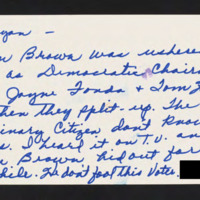 gan –
Brown was ushered
as Democratic Chair
Jayne Fonda & Tom
hen they split-up. The
inary Citizen don't know
I heard it on T.V. an
Brown, hid out for
hile. He don't fool this Voter.